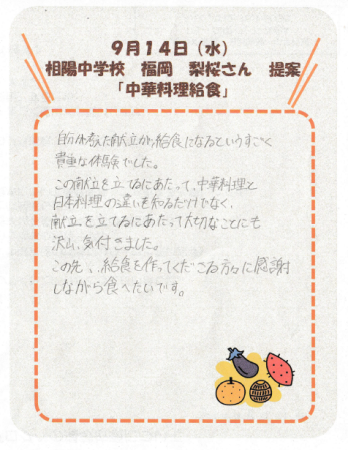 9月14日（水）
相陽中学校　福岡　梨桜さん　提案
「中華料理給食」
自分が考えた献立が給食になるというすごく
貴重な体験でした。
この献立を立てるにあたって、中華料理と
日本料理の違いを知るだけでなく、
献立を立てるにあたって大切なことにも
沢山、気付きました。
この先、給食を作ってくださる方々に感謝
しながら食べたいです。